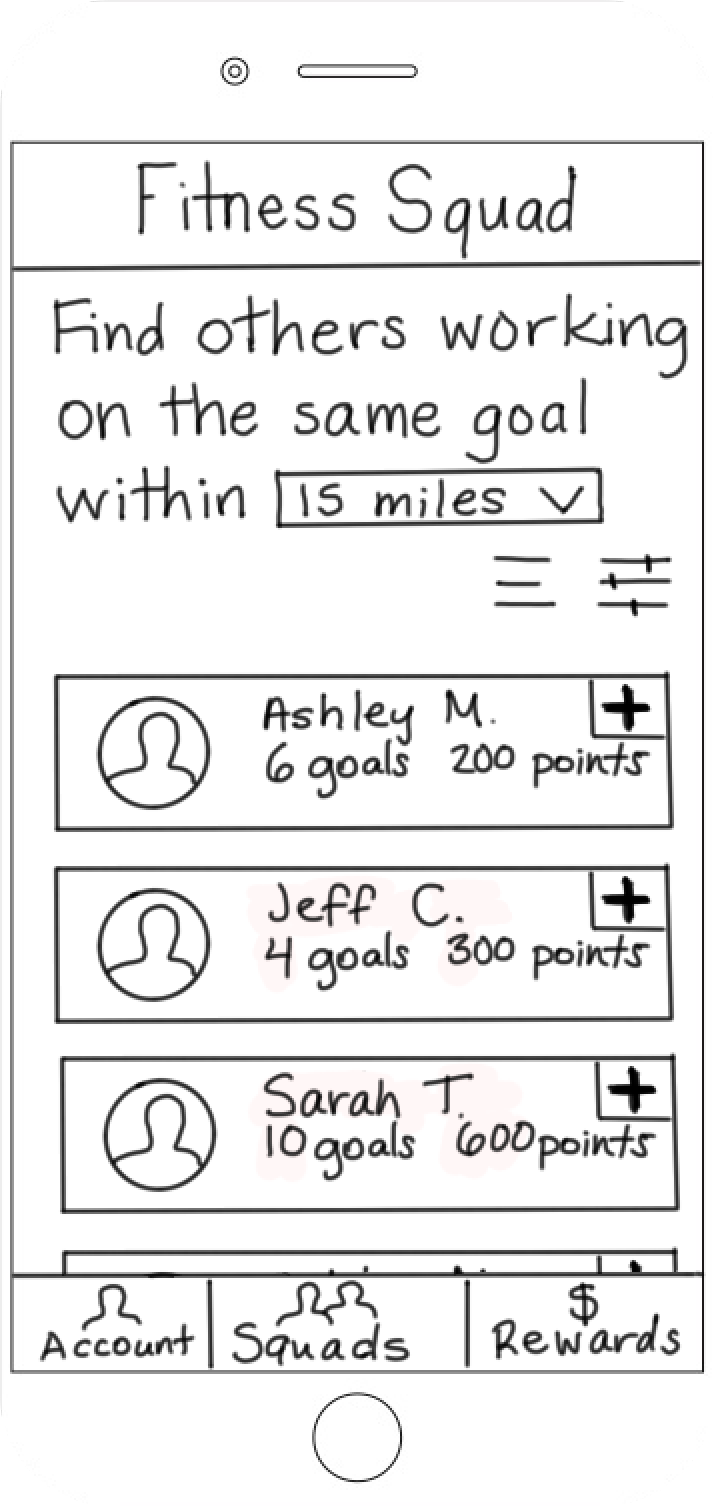 Fitness Squad
Find others working
on the same goal
within 15 miles
Ashley M.
6 goals 200 points
Jeff C.
4 goals 300 points
Sarah T.
10 goals 600 points
Account Squads $ Rewards